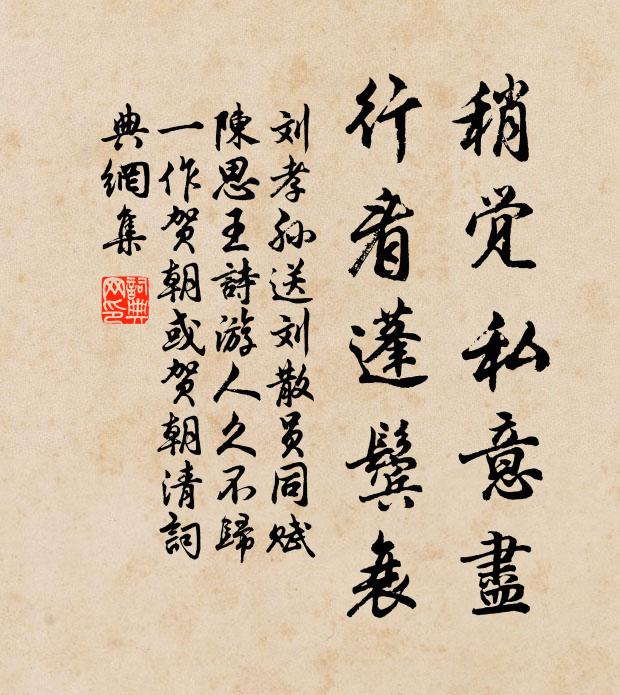 稍觉私意盡
行看蓬鬓衰
刘孝孙送刘散员同赋
陳思王詩游人久不歸
一作贺朝或贺朝清詞
典網集
詞典網印